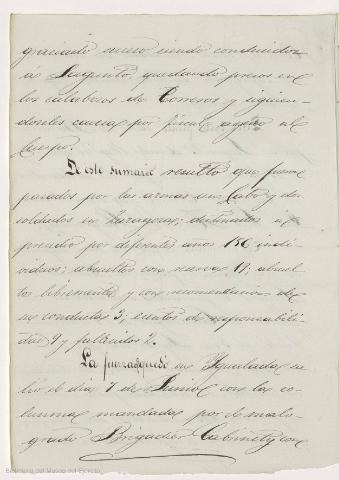 graciado suceso siendo conducidos
á Sagunto, quedando presos en
los calabozos de Torreros y siguien-
doseles causa por fiscal ageno al
Cuerpo.
De este sumario resultó que fueron
pasados por las armas un Cabo y dos
soldados en Zaragoza; destinados a
presidio por diferentes años 156 indi-
viduos; absueltos con nueva 19; absuel
tos libremente y con recomendacion de
su conducta 3; exentos de responsabili-
dad 9 y fallecidos 2.
La fuerza quedó en Igualada sa
lió el dia 7 de Junio con las co-
lumnas mandadas por el malo-
grado Brigadier Cabrinety con
Biblioteca del Museo del Ejército